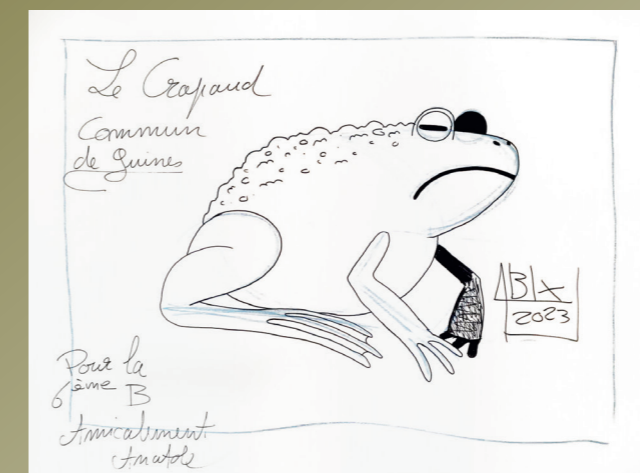 Le Crapaud
Commun
de Guines
ABX
2023
Pour la
6ème B
Amicalement
Anatole